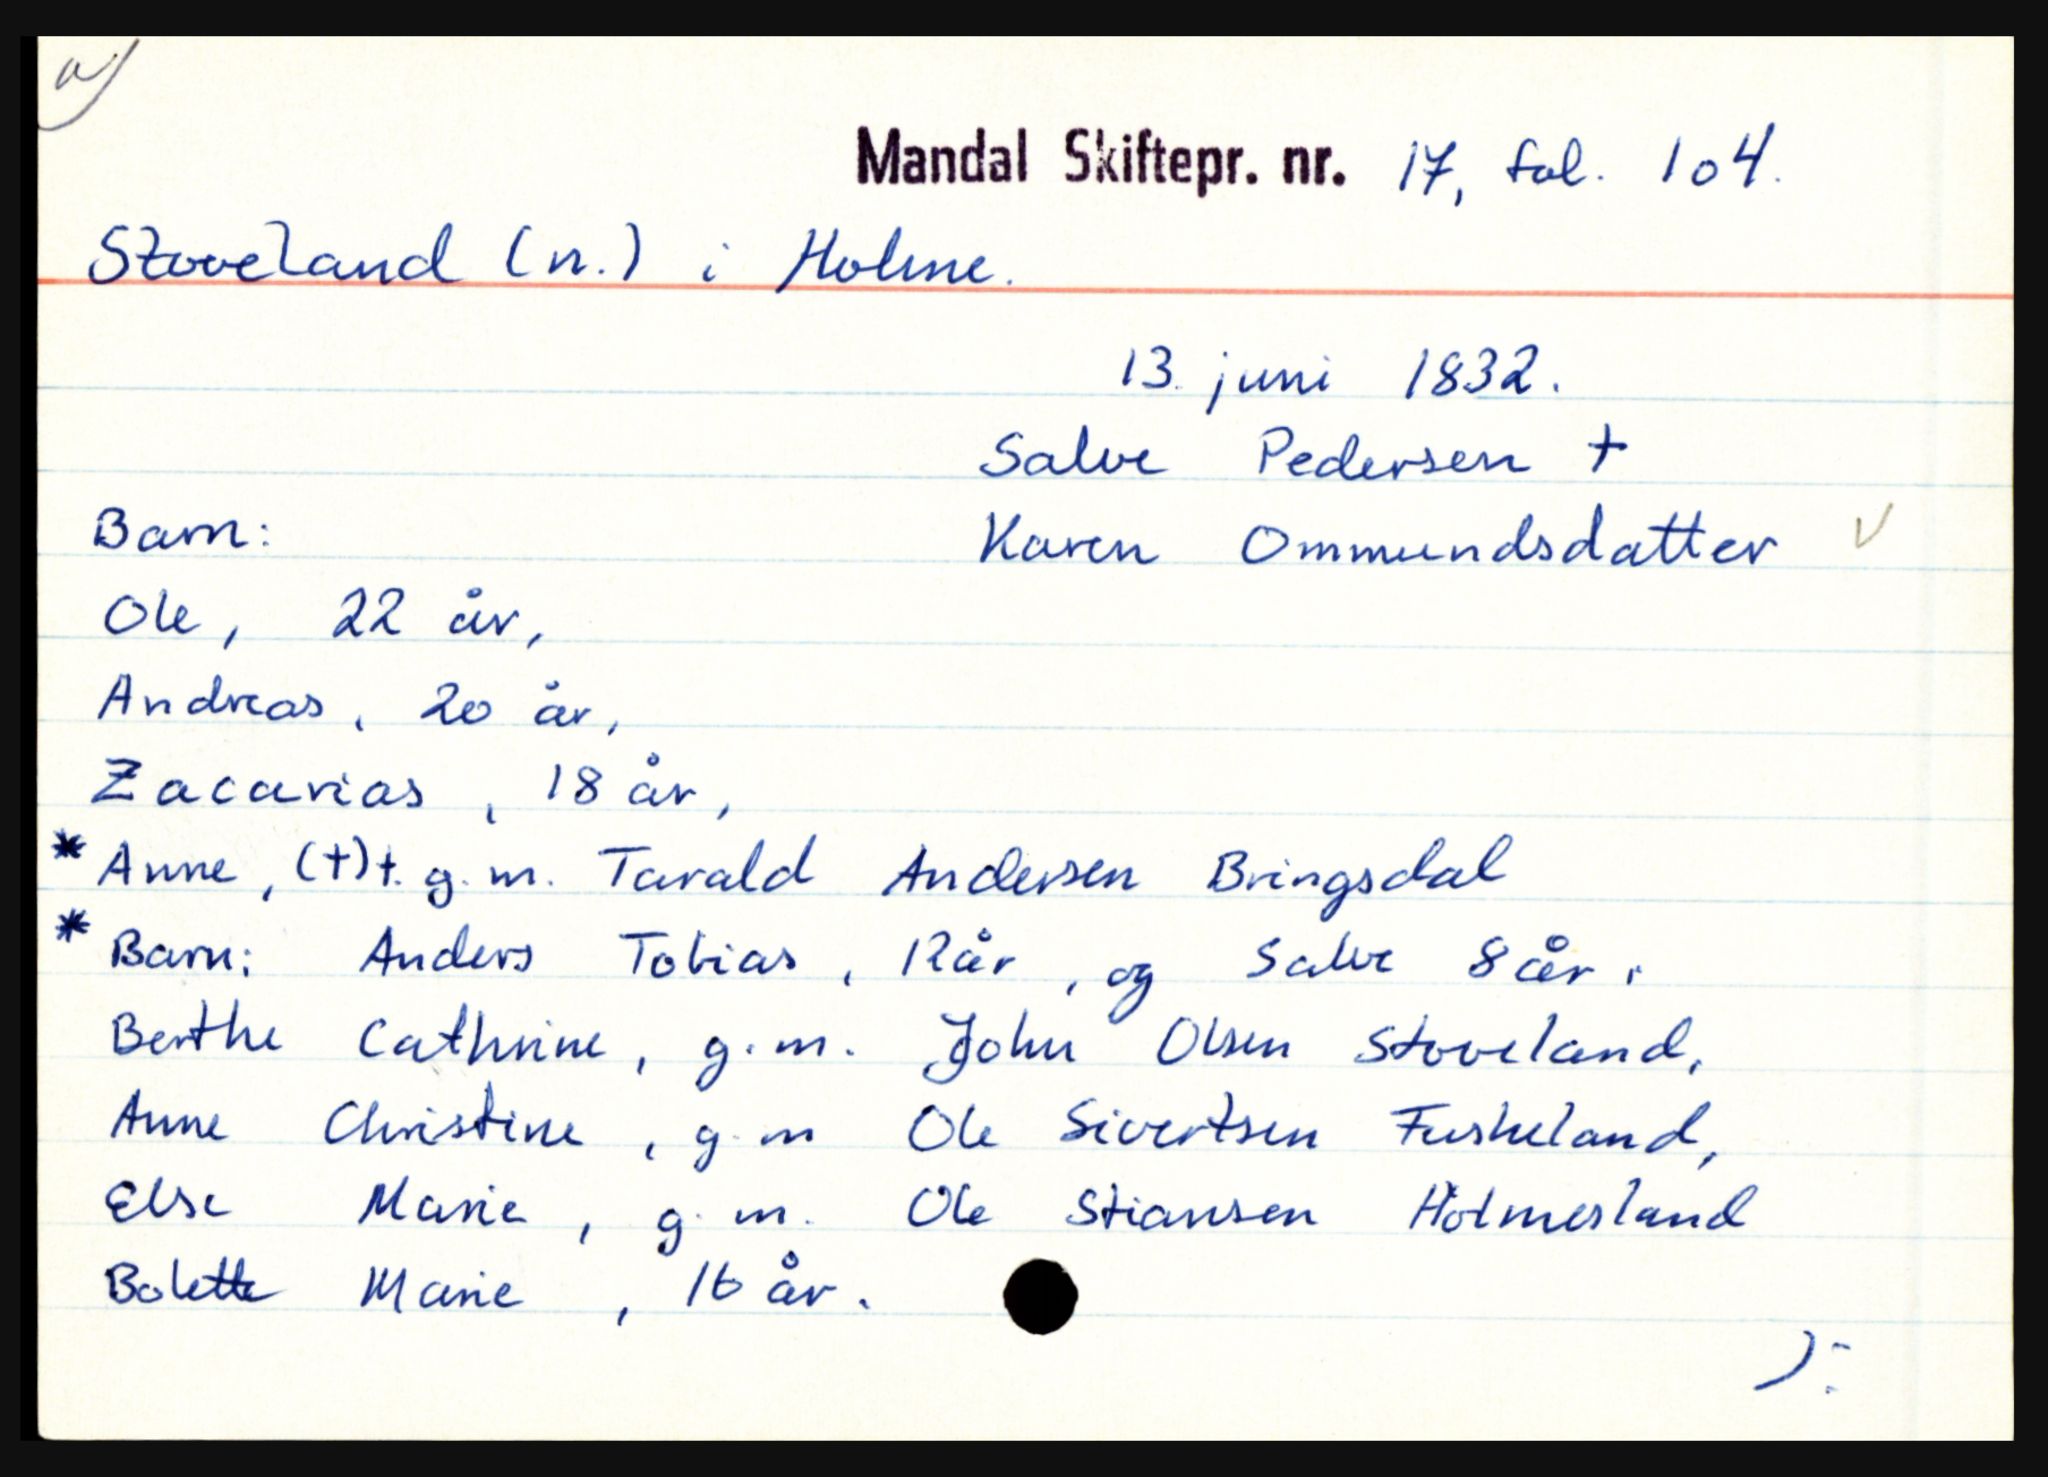 a)
Mandal Skiftepr. nr. 17, fol. 104.
Stoveland (n.) i Holme.
13. juni 1832.
Salve Pedersen †
Barn:
Karen Ommundsdatter ✓
Ole, 22 år,
Andreas, 20 år,
Zacarias, 18 år,
* Anne, (†) †. g. m. Tarald Andersen Bringsdal
* Barn: Anders Tobias, 12 år, og Salve 8 år.
Berthe Cathrine, g. m. John Olsen Stoveland,
Anne Christine, g. m Ole Sivertsen Fuskeland,
Else Marie, g. m. Ole Stiansen Holmesland
Bolette Marie, 16 år.